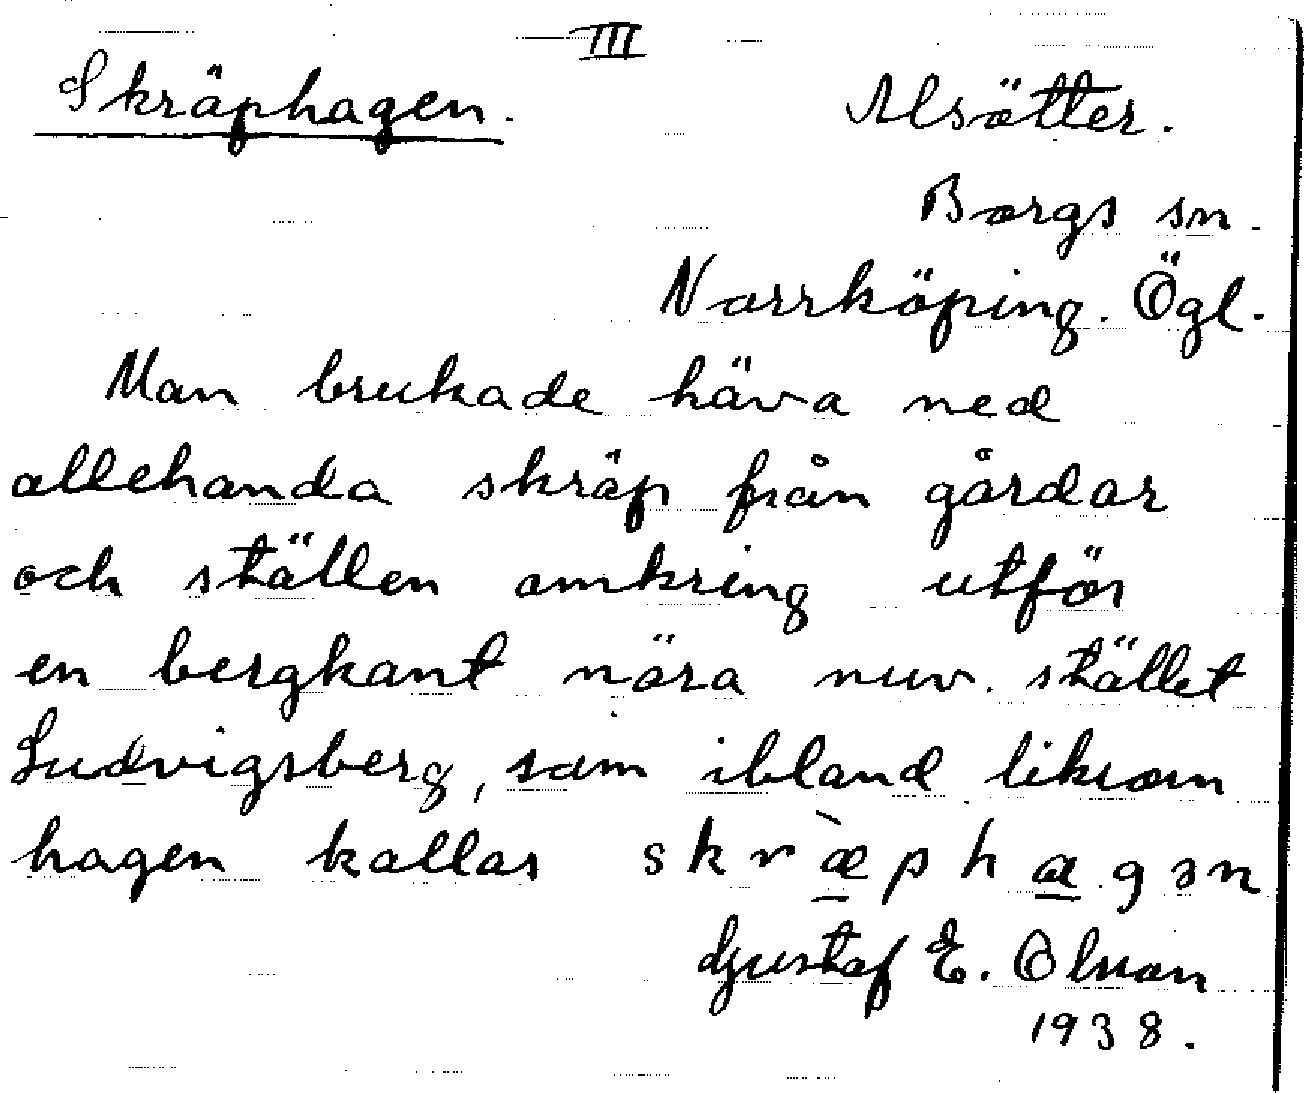 III
Skräphagen.
Alsätter.
Borgs sn.
Norrköping. Ögl.
Man brukade häva ned
allehanda skräp från gårdar
och ställen omkring utför
en bergkant nära nuv. stället
Ludvigsberg, som ibland liksom
hagen kallas skræ̀phagən
Gustaf E. Olsson
1938.